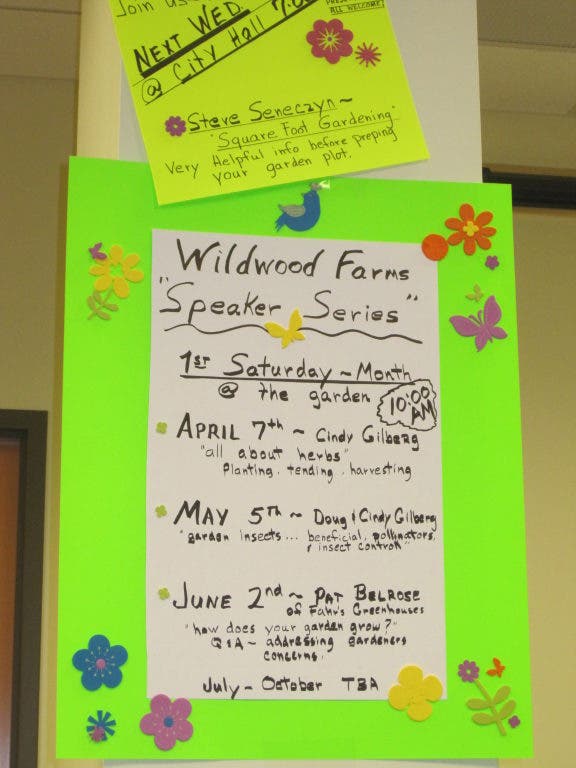 Join us
NEXT WED.
@ City Hall 7:00
ALL WELCOME
Steve Seneczyn~
"Square Foot Gardening"
Very Helpful info before preping
your garden plot.
Wildwood Farms
"Speaker Series"
1st Saturday ~ Month
@ the garden
10:00
AM
APRIL 7th ~ Cindy Gilberg
"all about herbs"
Planting. tending. harvesting
MAY 5TH ~ Doug & Cindy Gilberg
"garden insects... beneficial, pollinators,
& insect control"
JUNE 2nd ~ PAT BELROSE
of Fahr's Greenhouses
"how does your garden grow?"
Q&A ~ addressing gardeners
concerns.
July - October TBA